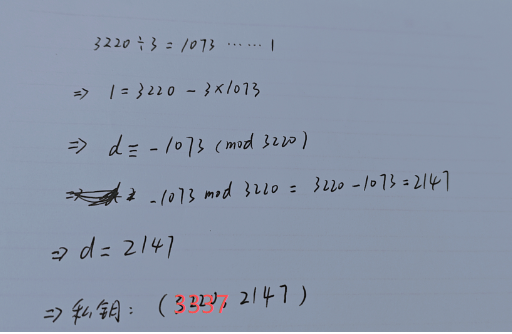 3220÷3=1073 …… 1
⇒ 1=3220-3×1073
⇒ d≡-1073 (mod 3220)
-1073 mod 3220 = 3220-1073=2147
⇒ d=2147
⇒ 私钥: (3337, 2147)